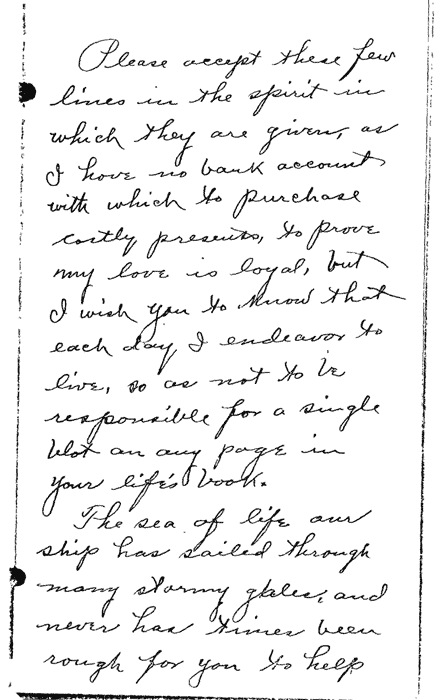 Please accept these few
lines in the spirit in
which they are given, as
I have no bank account
with which to purchase
costly presents, to prove
my love is loyal, but
I wish you to know that
each day I endeavor to
live, so as not to be
responsible for a single
blot on any page in
your life's book.
The sea of life our
ship has sailed through
many stormy gales, and
never has times been
rough for you to help